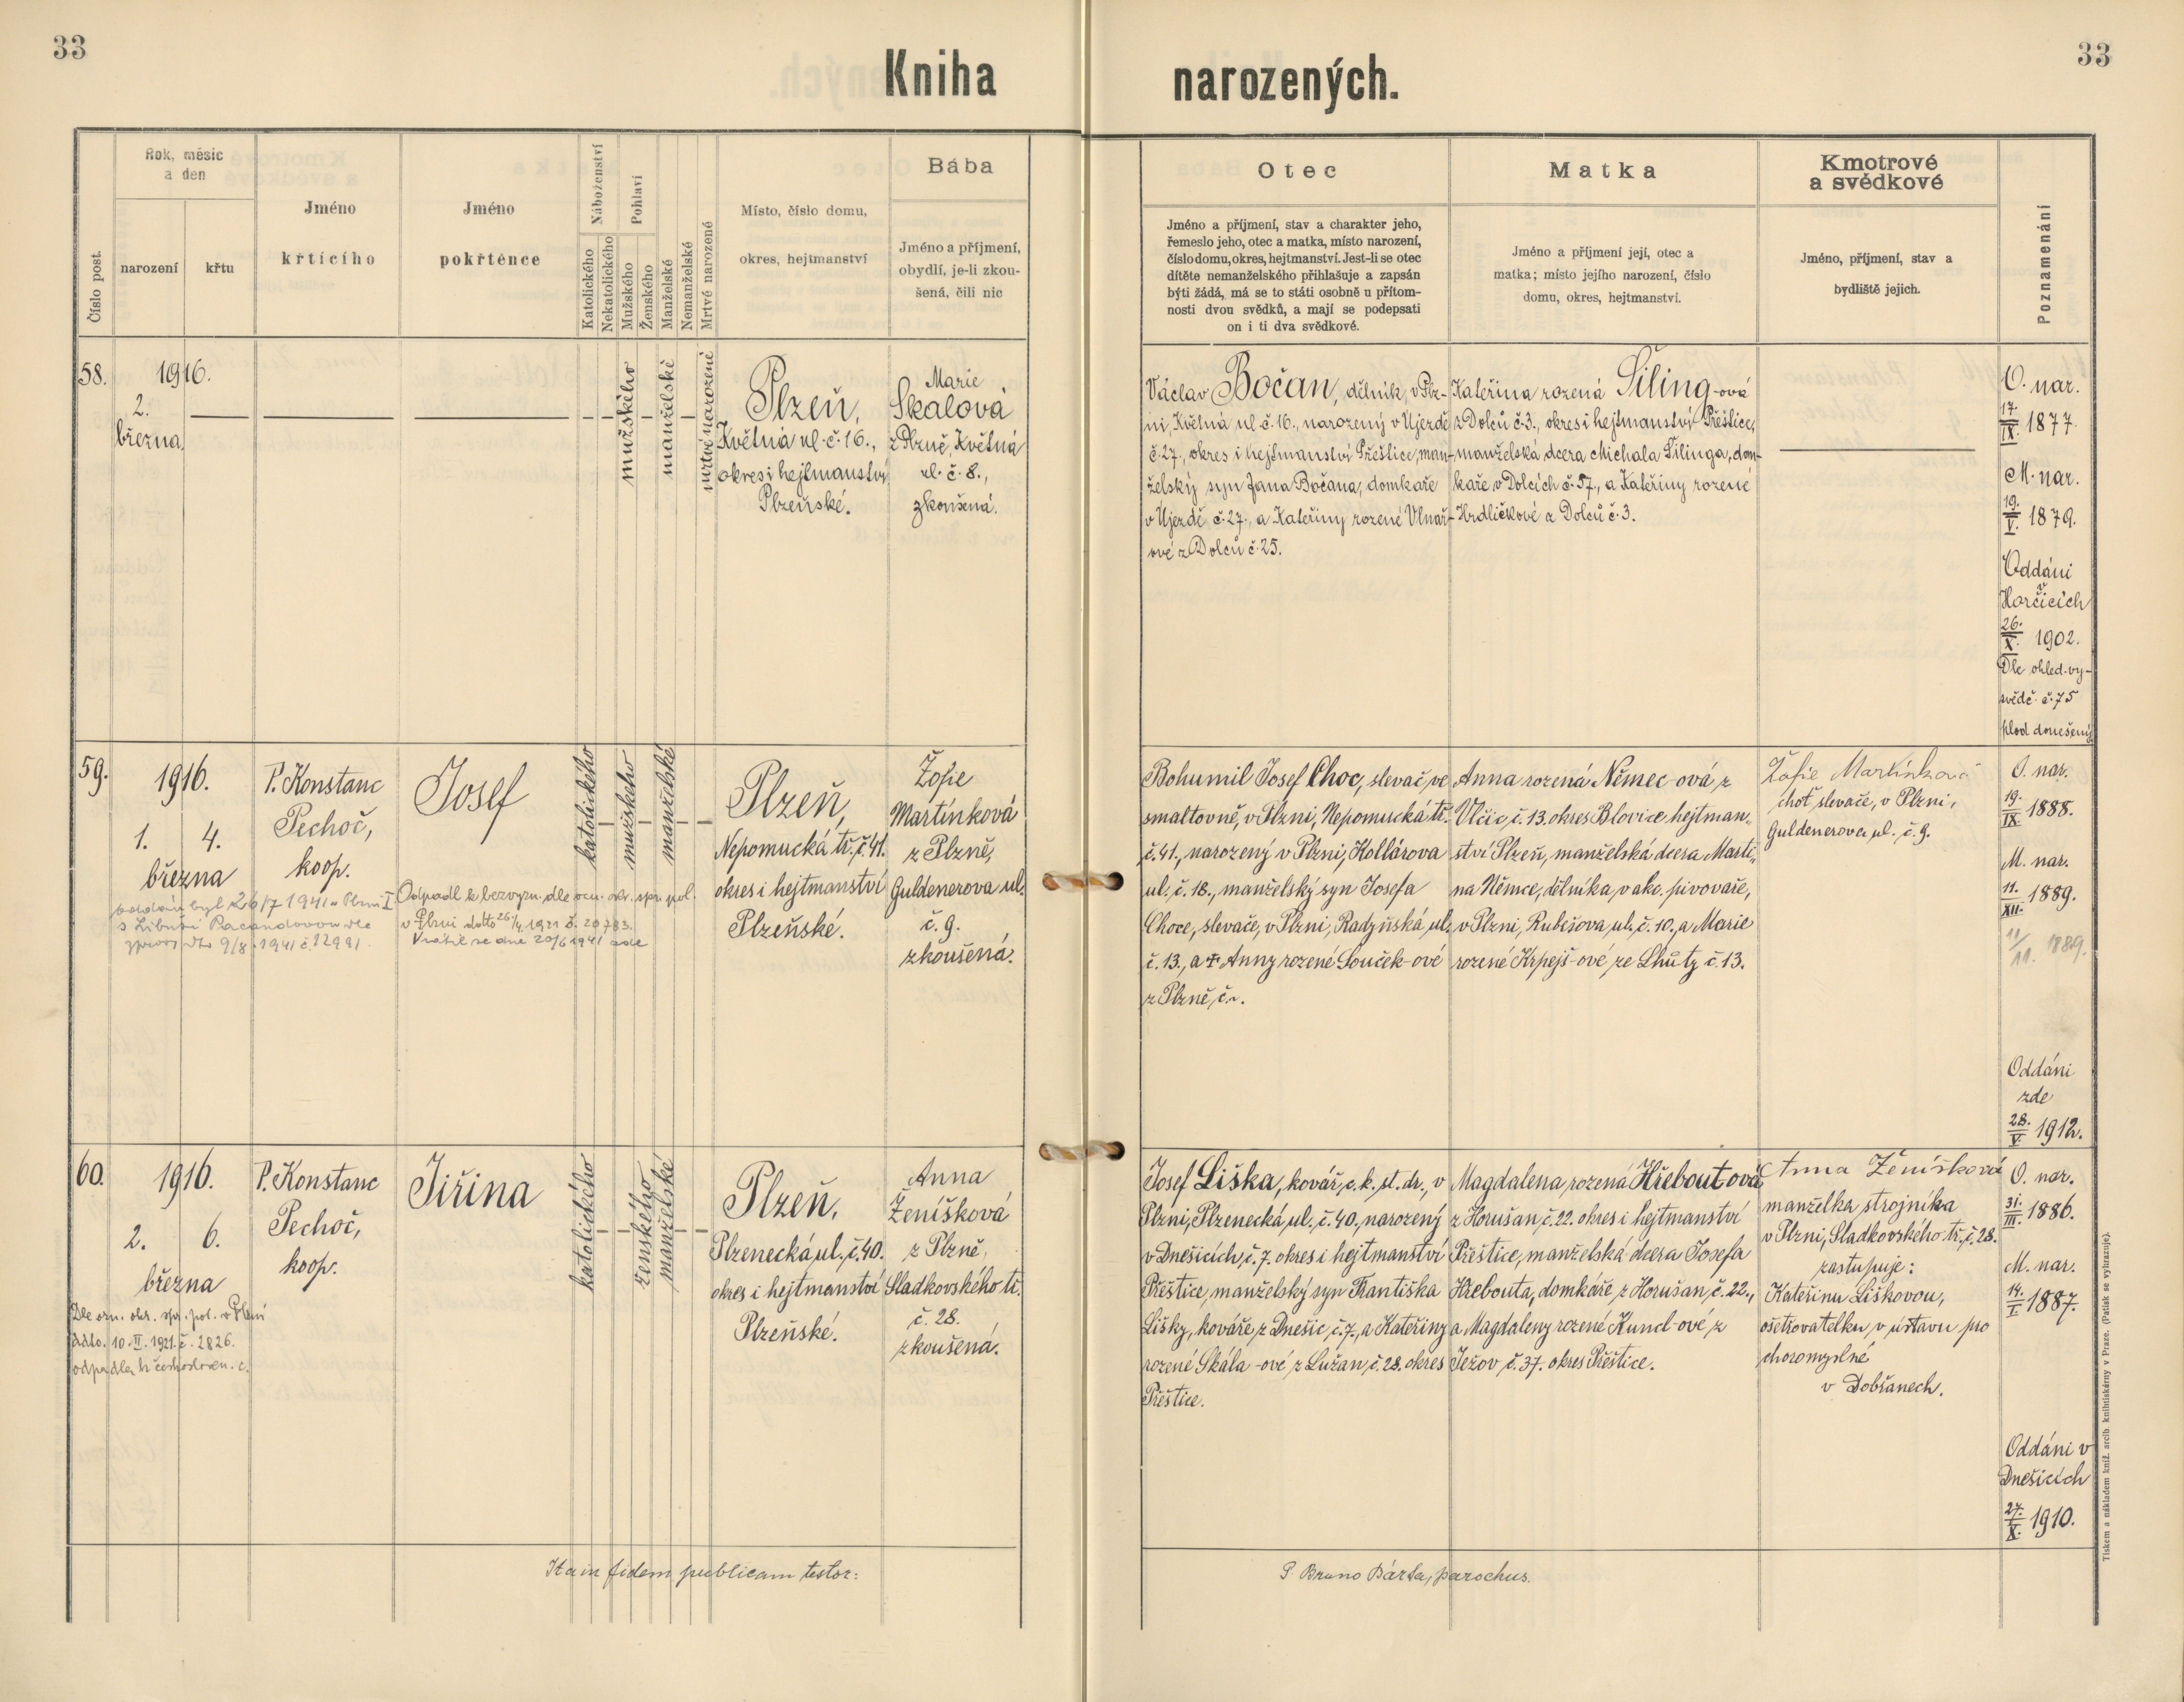 33
33
Kniha narozených.
Číslo post.
Rok, měsíc
a den
narození
křtu
Jméno
křticího
Jméno
pokřtěnce
Náboženství
Katolického
Nekatolického
Pohlaví
Mužského
Ženského
Manželské
Nemanželské
Mrtvě narozené
Místo, číslo domu,
okres, hejtmanství
Bába
Jméno a příjmení,
obydlí, je-li zkou-
šená, čili nic
Otec
Jméno a příjmení, stav a charakter jeho,
řemeslo jeho, otec a matka, místo narození,
číslo domu, okres, hejtmanství. Jest-li se otec
dítěte nemanželského přihlašuje a zapsán
býti žádá, má se to státi osobně u přítom-
nosti dvou svědků, a mají se podepsati
on i ti dva svědkové.
Matka
Jméno a příjmení její, otec a
matka; místo jejího narození, číslo
domu, okres, hejtmanství.
Kmotrové
a svědkové
Jméno, příjmení, stav a
bydliště jejich.
Poznamenání
58.
1916.
2.
března
mužského
manželské
mrtvě narozené
Plzeň,
Květná ul. č. 16.,
okres i hejtmanství
Plzeňské.
Marie
Skalová
z Plzně, Květná
ul. č. 8.,
zkoušená.
Václav Bočan, dělník, v Plz-
ni, Květná ul. č. 16., narozený v Újezdě
č. 27., okres i hejtmanství Přeštice, man-
želský syn Jana Bočana, domkaře
v Újezdě č. 27., a Kateřiny rozené Vlnař-
ové z Dolců č. 25.
Kateřina rozená Šiling-ová
z Dolců č. 3., okres i hejtmanství Přeštice,
manželská dcera Michala Šilinga, dom-
kaře v Dolcích č. 57., a Kateřiny rozené
Hrdličkové z Dolců č. 3.
O. nar.
17./IX. 1877.
M. nar.
19./V. 1879.
Oddáni
v Horčicích
26./X. 1902.
Dle ohled. vy-
svědč. č. 75
plod donešený.
59.
1916.
1. 4.
března
P. Konstanc
Pechoč,
koop.
Josef
katolického
mužského
manželské
Plzeň,
Nepomucká tř. č. 41.
okres i hejtmanství
Plzeňské.
Žofie
Martínková
z Plzně,
Guldenerova ul.
č. 9.
zkoušená.
oddán byl 26/7 1941 v Plzni I.
s Libuší
9/8 1941 č. 12991.
Odpadl k bezvyzn. dle ozn. okr. spr. pol.
v Plzni ddto 26/4 1921 č. 20783.
Vrátil se dne 20/6 1941
Bohumil Josef Choc, slevač ve
smaltovně, v Plzni, Nepomucká tř.
č. 41., narozený v Plzni, Kollárova
ul. č. 18., manželský syn Josefa
Choce, slevače, v Plzni, Radyňská ul.
č. 13., a † Anny rozené Souček-ové
z Plzně, č. ~.
Anna rozená Němec-ová z
Vlčic, č. 13. okres Blovice hejtman-
ství Plzeň, manželská dcera Marti-
na Němce, dělníka v akc. pivovaře,
v Plzni, Rubešova ul. č. 10., a Marie
rozené Krpejš-ové ze Lhůty č. 13.
Žofie Martínková
choť slevače, v Plzni,
Guldenerova ul. č. 9.
O. nar.
19./IX. 1888.
M. nar.
11./XII. 1889.
11/11. 1889.
Oddáni
zde
28./V. 1912.
60.
1916.
2. 6.
března
P. Konstanc
Pechoč,
koop.
Jiřina
katolického
ženského
manželské
Plzeň,
Plzenecká ul. č. 40.
okres i hejtmanství
Plzeňské.
Anna
Ženíšková
z Plzně,
Sladkovského tř.
č. 28.
zkoušená.
Dle ozn. okr. spr. pol. v Plzni
ddto. 10. II. 1921. č. 2826.
odpadla k českosloven. c.
Josef Liška, kovář, c. k. st. dr., v
Plzni, Plzenecká ul. č. 40., narozený
v Dnešicích, č. 7. okres i hejtmanství
Přeštice, manželský syn Františka
Lišky, kováře, z Dnešic, č. 7., a Kateřiny
rozené Skála-ové z Lužan, č. 28. okres
Přeštice.
Magdalena rozená Hřeboutová
z Horušan, č. 22. okres i hejtmanství
Přeštice, manželská dcera Josefa
Hřebouta, domkáře, z Horušan, č. 22.,
a Magdaleny rozené Kuncl-ové z
Ježov č. 37. okres Přeštice.
Anna Ženíšková
manželka strojníka
v Plzni, Sladkovského tř., č. 28.
zastupuje:
Kateřinu Liškovou,
ošetřovatelku v ústavu pro
choromyslné
v Dobřanech.
O. nar.
31./III. 1886.
M. nar.
14./I. 1887.
Oddáni v
Dnešicích
27./X. 1910.
Ita in fidem publicam testor:
P. Bruno Bárta, parochus.
Tiskem a nákladem kníž. arcib. knihtiskárny v Praze. (Patisk se vyhrazuje).